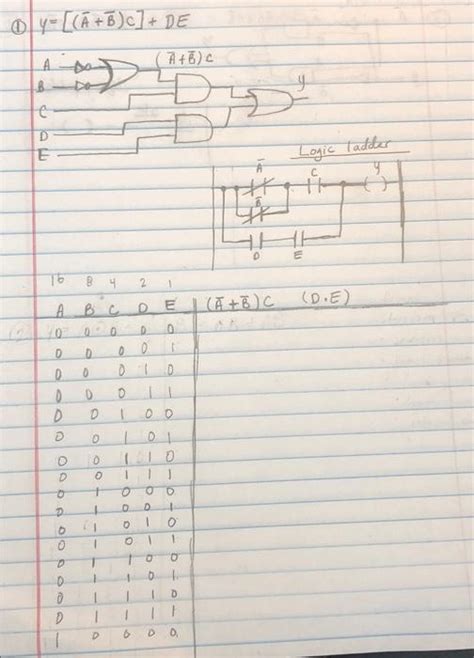 ① y=[(A̅+B̅)C]+ DE
(A̅+B̅)C
A
B
y
C
D
E
Logic ladder
A̅ C y
B̅
D E
16 8 4 2 1
A B C D E (A̅+B̅)C (D·E)
0 0 0 0 0
0 0 0 0 1
0 0 0 1 0
0 0 0 1 1
0 0 1 0 0
0 0 1 0 1
0 0 1 1 0
0 0 1 1 1
0 1 0 0 0
0 1 0 0 1
0 1 0 1 0
0 1 0 1 1
0 1 1 0 0
0 1 1 0 1
0 1 1 1 0
0 1 1 1 1
1 0 0 0 0